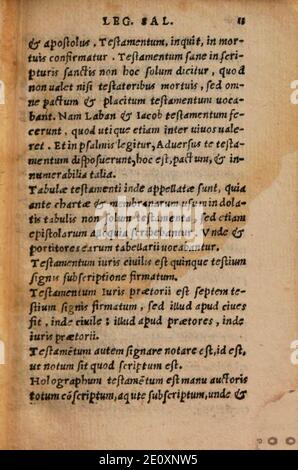 LEG. SAL.
& apostolus. Testamentum, inquit, in mor-
tuis confirmatur. Testamentum sane in scri-
pturis sanctis non hoc solum dicitur, quod
non ualet nisi testatoribus mortuis, sed om-
ne pactum & placitum testamentum uoca-
bant. Nam Laban & Iacob testamentum fe-
cerunt, quod utique etiam inter uiuos uale-
ret. Et in psalmis legitur, Aduersus te testa-
mentum disposuerunt, hoc est, pactum, & in-
numerabilia talia.
Tabulæ testamenti inde appellatæ sunt, quia
ante chartæ & membranarum usum in dola-
tis tabulis non solum testamenta, sed etiam
epistolarum alloquia scribebantur. Vnde &
portitores earum tabellarii uocabantur.
Testamentum iuris ciuilis est quinque testium
signis subscriptione firmatum.
Testamentum Iuris prætorii est septem te-
stium signis firmatum, sed illud apud ciues
fit, inde ciuile : illud apud prætores, inde
iuris prætorii.
Testamẽtum autem signare notare est, id est,
ut notum sit quod scriptum est.
Holographum testamẽtum est manu auctoris
totum cõscriptum, atque subscriptum, unde &
alamy
Image ID: 2E0XNW5
www.alamy.com